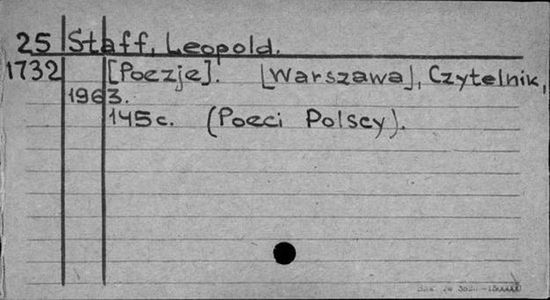 25 Staff, Leopold.
1732 [Poezje]. [Warszawa], Czytelnik,
1963.
145c. (Poeci Polscy).